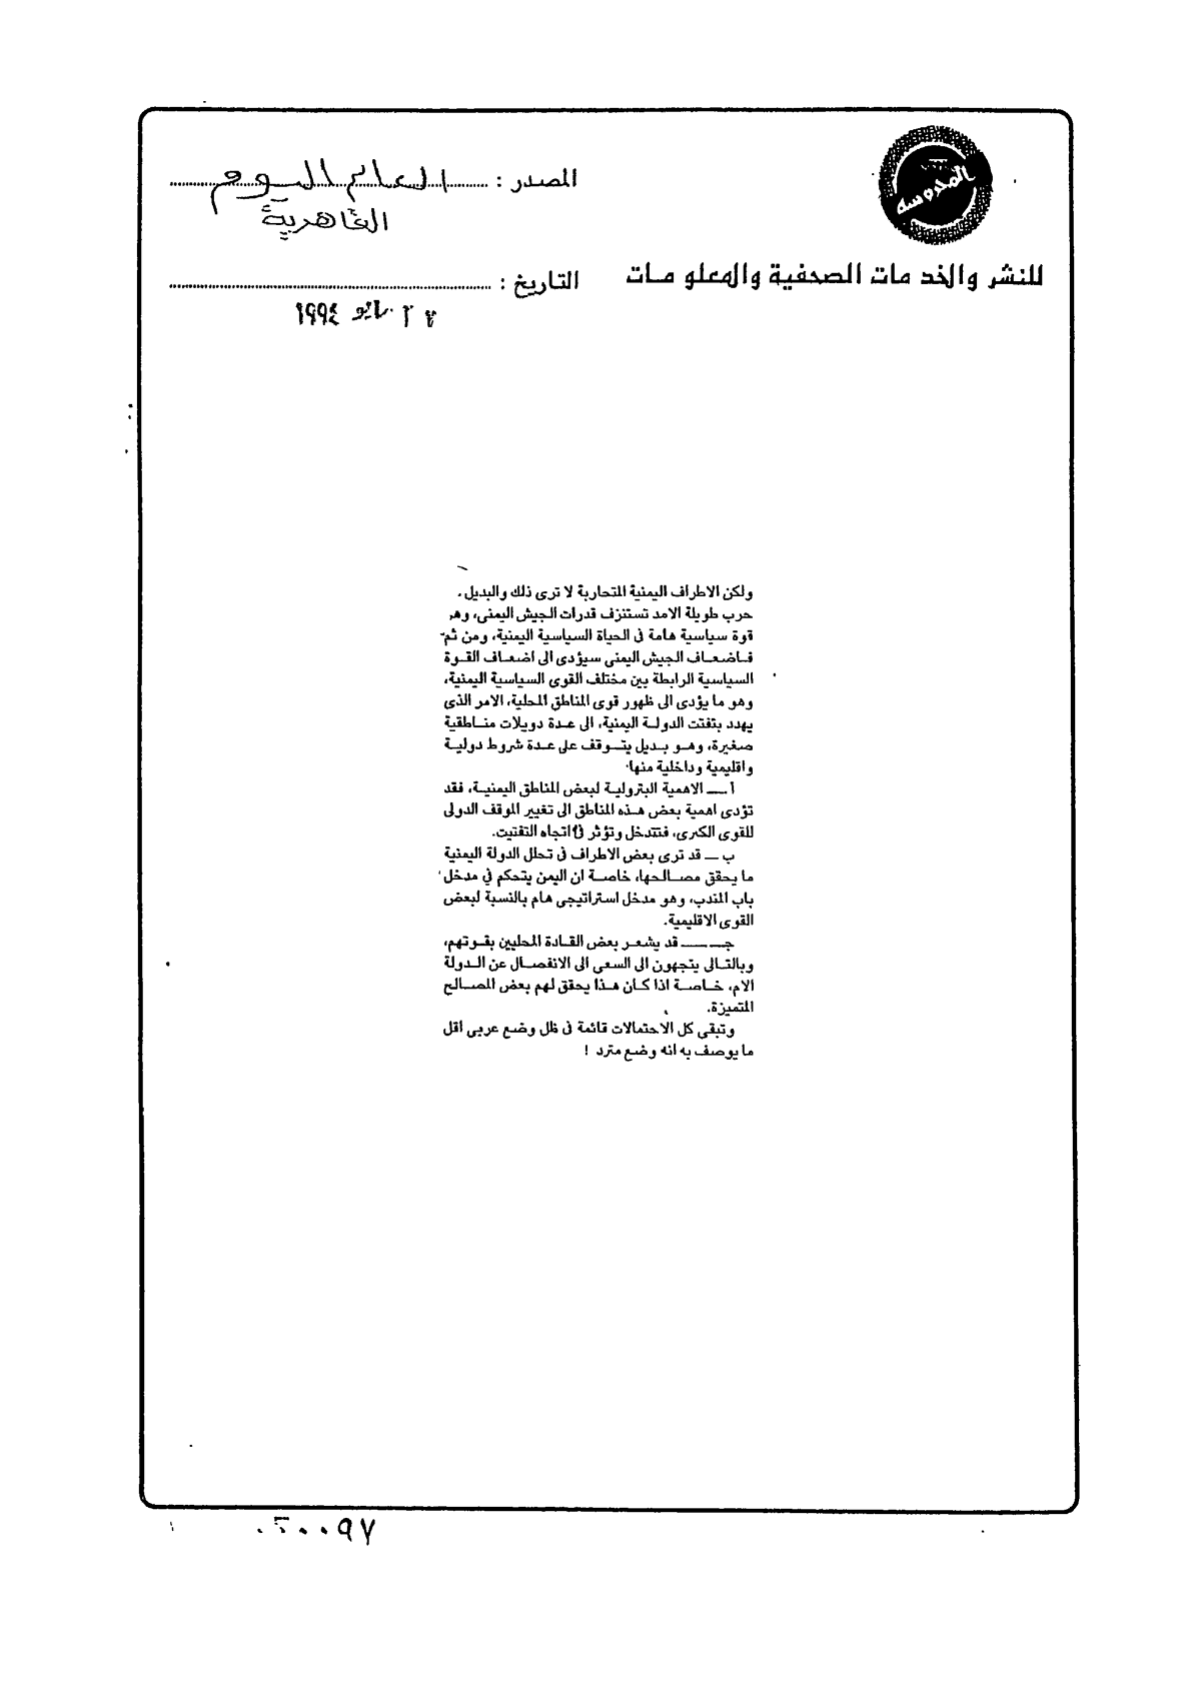 المحروسة
المصدر : العالم اليوم
القاهرية
للنشر والخدمات الصحفية والمعلومات
التاريخ :
مايو ١٩٩٤
ولكن الاطراف اليمنية المتحاربة لا ترى ذلك والبديل.
حرب طويلة الامد تستنزف قدرات الجيش اليمنى، وهو
قوة سياسية هامة فى الحياة السياسية اليمنية، ومن ثم
فاضعاف الجيش اليمنى سيؤدى الى اضعاف القوة
السياسية الرابطة بين مختلف القوى السياسية اليمنية،
وهو ما يؤدى الى ظهور قوى المناطق المحلية، الامر الذى
يهدد بتفتت الدولة اليمنية، الى عدة دويلات مناطقية
صغيرة، وهو بديل يتوقف على عدة شروط دولية
واقليمية وداخلية منها:
أ ـــ الاهمية البترولية لبعض المناطق اليمنية، فقد
تؤدى اهمية بعض هذه المناطق الى تغيير الموقف الدولى
للقوى الكبرى، فتتدخل وتؤثر فى اتجاه التفتيت.
ب ـــ قد ترى بعض الاطراف فى تحلل الدولة اليمنية
ما يحقق مصالحها، خاصة ان اليمن يتحكم في مدخل
باب المندب، وهو مدخل استراتيجى هام بالنسبة لبعض
القوى الاقليمية.
جـ ـــ قد يشعر بعض القادة المحليين بقوتهم،
وبالتالى يتجهون الى السعى الى الانفصال عن الدولة
الام، خاصة اذا كان هذا يحقق لهم بعض المصالح
المتميزة.
وتبقى كل الاحتمالات قائمة فى ظل وضع عربى اقل
ما يوصف به انه وضع مترد !